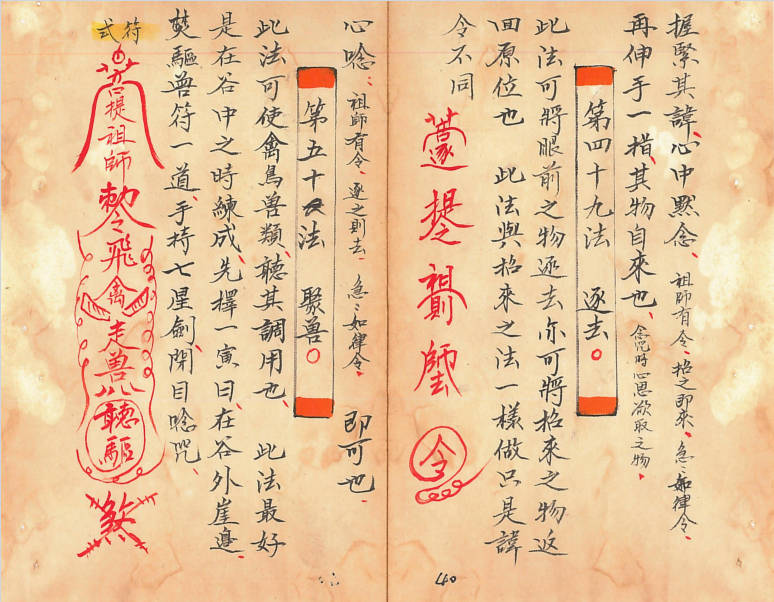 握緊其諱、心中默念、祖師有令、招之即來、急〻如律令、
再伸手一指、其物自來也、念咒時心思欲取之物、
第四十九法 逐去○
此法可將眼前之物逐去亦可將招來之物返
回原位也 此法與招來之法一樣做只是諱
令不同
令
心唸、祖師有令、逐之則去、急〻如律令、即可也、
第五十法 聚兽○
此法可使禽鳥兽類、聽其調用也、此法最好
是在谷中之時練成、先擇一寅日、在谷外崖邊、
焚驅兽符一道、手持七星劍、閉目唸咒、
符式
菩提祖師勅令飛禽走兽聽驅煞
40